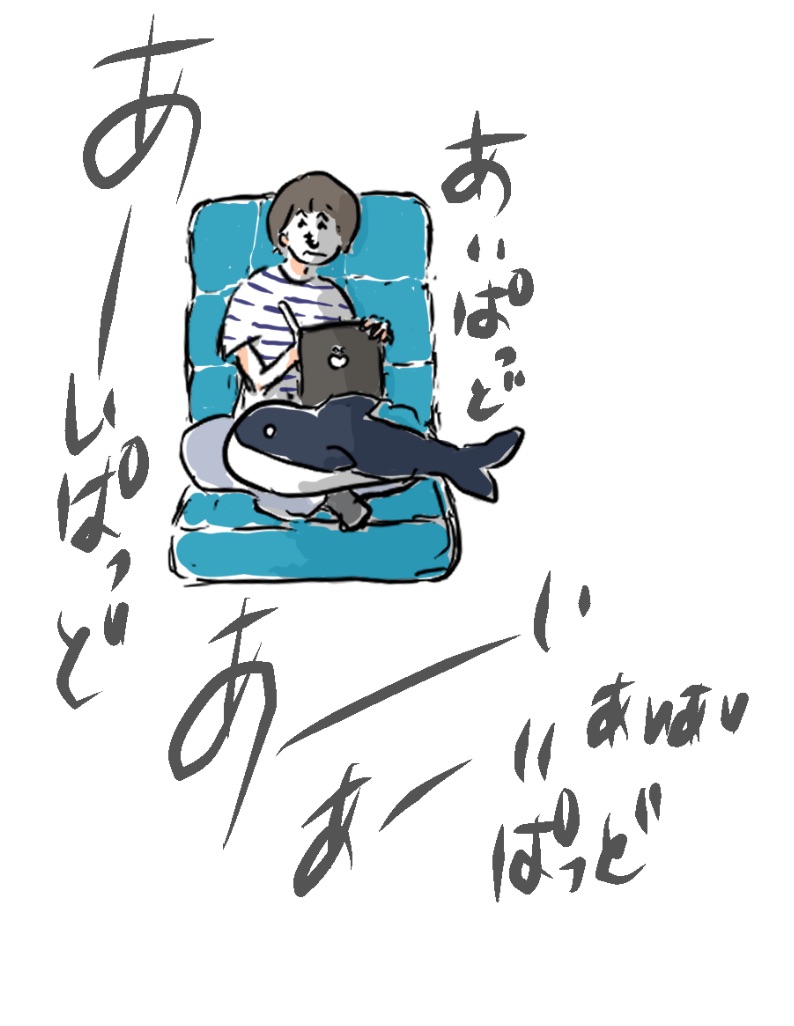 あーいぱっど
あいぱっど
あーい
あいあい
あーいぱっど